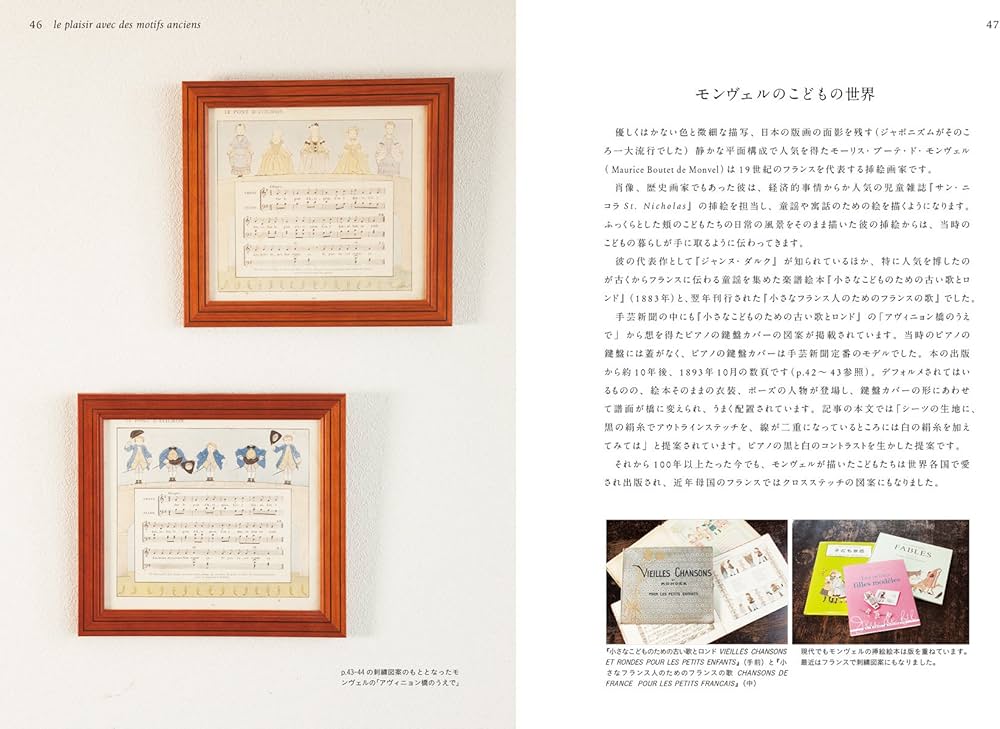 46 le plaisir avec des motifs anciens
47
LE PONT D'AVIGNON
Allegro
CHANT
PIANO
Allegro
CHANT
PIANO
p.43-44 の刺繍図案のもととなったモ
ンヴェルの「アヴィニョン橋のうえで」
モンヴェルのこどもの世界
優しくはかない色と微細な描写、日本の版画の面影を残す(ジャポニズムがそのこ
ろ一大流行でした) 静かな平面構成で人気を得たモーリス・ブーテ・ド・モンヴェル
(Maurice Boutet de Monvel) は19世紀のフランスを代表する挿絵画家です。
肖像、歴史画家でもあった彼は、経済的事情からか人気の児童雑誌『サン・ニ
コラ St. Nicholas』の挿絵を担当し、童謡や寓話のための絵を描くようになります。
ふっくらとした頬のこどもたちの日常の風景をそのまま描いた彼の挿絵からは、当時の
こどもの暮らしが手に取るように伝わってきます。
彼の代表作として『ジャンヌ・ダルク』が知られているほか、特に人気を博したの
が古くからフランスに伝わる童謡を集めた楽譜絵本『小さなこどものための古い歌とロ
ンド』(1883年)と、翌年刊行された『小さなフランス人のためのフランスの歌』でした。
手芸新聞の中にも『小さなこどものための古い歌とロンド』の「アヴィニョン橋のうえ
で」から想を得たピアノの鍵盤カバーの図案が掲載されています。当時のピアノの
鍵盤には蓋がなく、ピアノの鍵盤カバーは手芸新聞定番のモデルでした。本の出版
から約10年後、1893年10月の数頁です(p.42〜43参照)。デフォルメされてはい
るものの、絵本そのままの衣装、ポーズの人物が登場し、鍵盤カバーの形にあわせ
て譜面が橋に変えられ、うまく配置されています。記事の本文では「シーツの生地に、
黒の絹糸でアウトラインステッチを、線が二重になっているところには白の絹糸を加え
てみては」と提案されています。ピアノの黒と白のコントラストを生かした提案です。
それから100年以上たった今でも、モンヴェルが描いたこどもたちは世界各国で愛
され出版され、近年母国のフランスではクロスステッチの図案にもなりました。
VIEILLES CHANSONS
RONDES
POUR LES PETITS ENFANTS
FABLES
filles modèles
『小さなこどものための古い歌とロンド VIEILLES CHANSONS
ET RONDES POUR LES PETITS ENFANTS』(手前)と『小
さなフランス人のためのフランスの歌 CHANSONS DE
FRANCE POUR LES PETITS FRANCAIS』(中)
現代でもモンヴェルの挿絵絵本は版を重ねています。
最近はフランスで刺繍図案にもなりました。